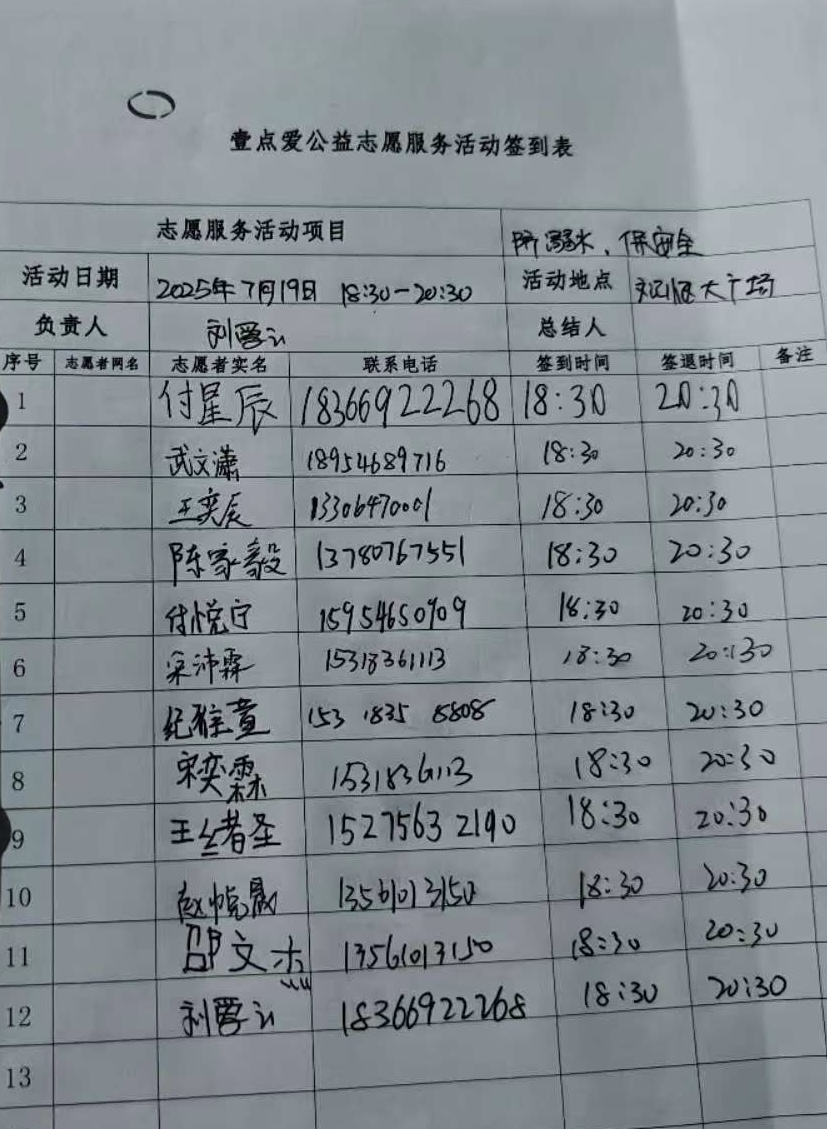 壹点爱公益志愿服务活动签到表
志愿服务活动项目 防溺水、保安全
活动日期 2025年7月19日 18:30-20:30 活动地点 大广场
负责人 刘 总结人
序号 志愿者网名 志愿者实名 联系电话 签到时间 签退时间 备注
1 付星辰 18366922268 18:30 20:30
2 武文潇 18954689716 18:30 20:30
3 王奕辰 13306470001 18:30 20:30
4 陈家毅 13780767551 18:30 20:30
5 付悦宁 15954650909 18:30 20:30
6 宋沛霖 15318361113 18:30 20:30
7 纪 153 1835 8808 18:30 20:30
8 宋奕霖 15318361113 18:30 20:30
9 王绪圣 15275632190 18:30 20:30
10 赵 13561013150 18:30 20:30
11 邵文 13561013150 18:30 20:30
12 刘 18366922268 18:30 20:30
13